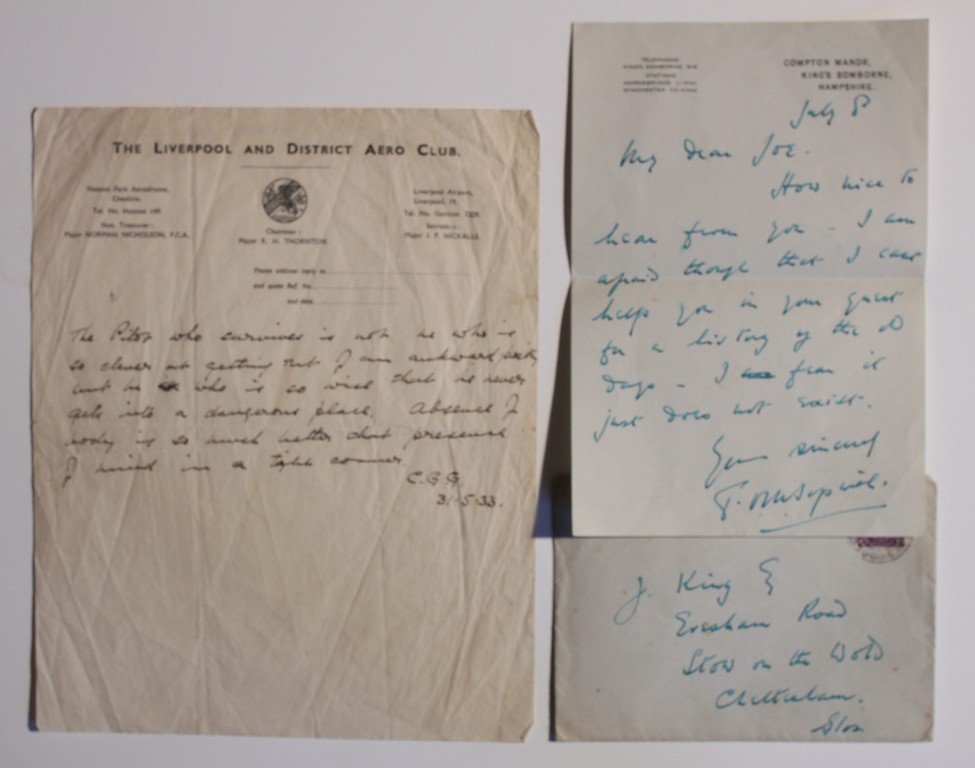 THE LIVERPOOL AND DISTRICT AERO CLUB.
Hooton Park Aerodrome,
Cheshire.
Tel. No. Hooton 149.
Hon. Treasurer:
Major NORMAN NICHOLSON, F.C.A.
Chairman:
Major R. H. THORNTON.
Liverpool Airport,
Liverpool, 19.
Tel. No. Garston 1229.
Secretary:
Major J. P. NICKALLS.
Please address reply to
and quote Ref. No.
and date
The Pilot who survives is not he who is
so clever at getting out of an awkward
but he who is so wise that he never
gets into a dangerous place. Absence of
body is so much better that presence
of mind in a tight corner
C.G.G.
31-5-33.
TELEPHONE
KING'S SOMBORNE
STATIONS
HORSEBRIDGE
WINCHESTER
COMPTON MANOR,
KING'S SOMBORNE,
HAMPSHIRE.
July 8
My dear Joe.
How nice to
hear from you - I am
afraid though that I cant
help you in your quest
for a history of the old
days - I fear it
just does not exist.
Yours sincerely
T.O.M. Sopwith.
J. King
Evesham Road
Stow on the Wold
Cheltenham.
Glos